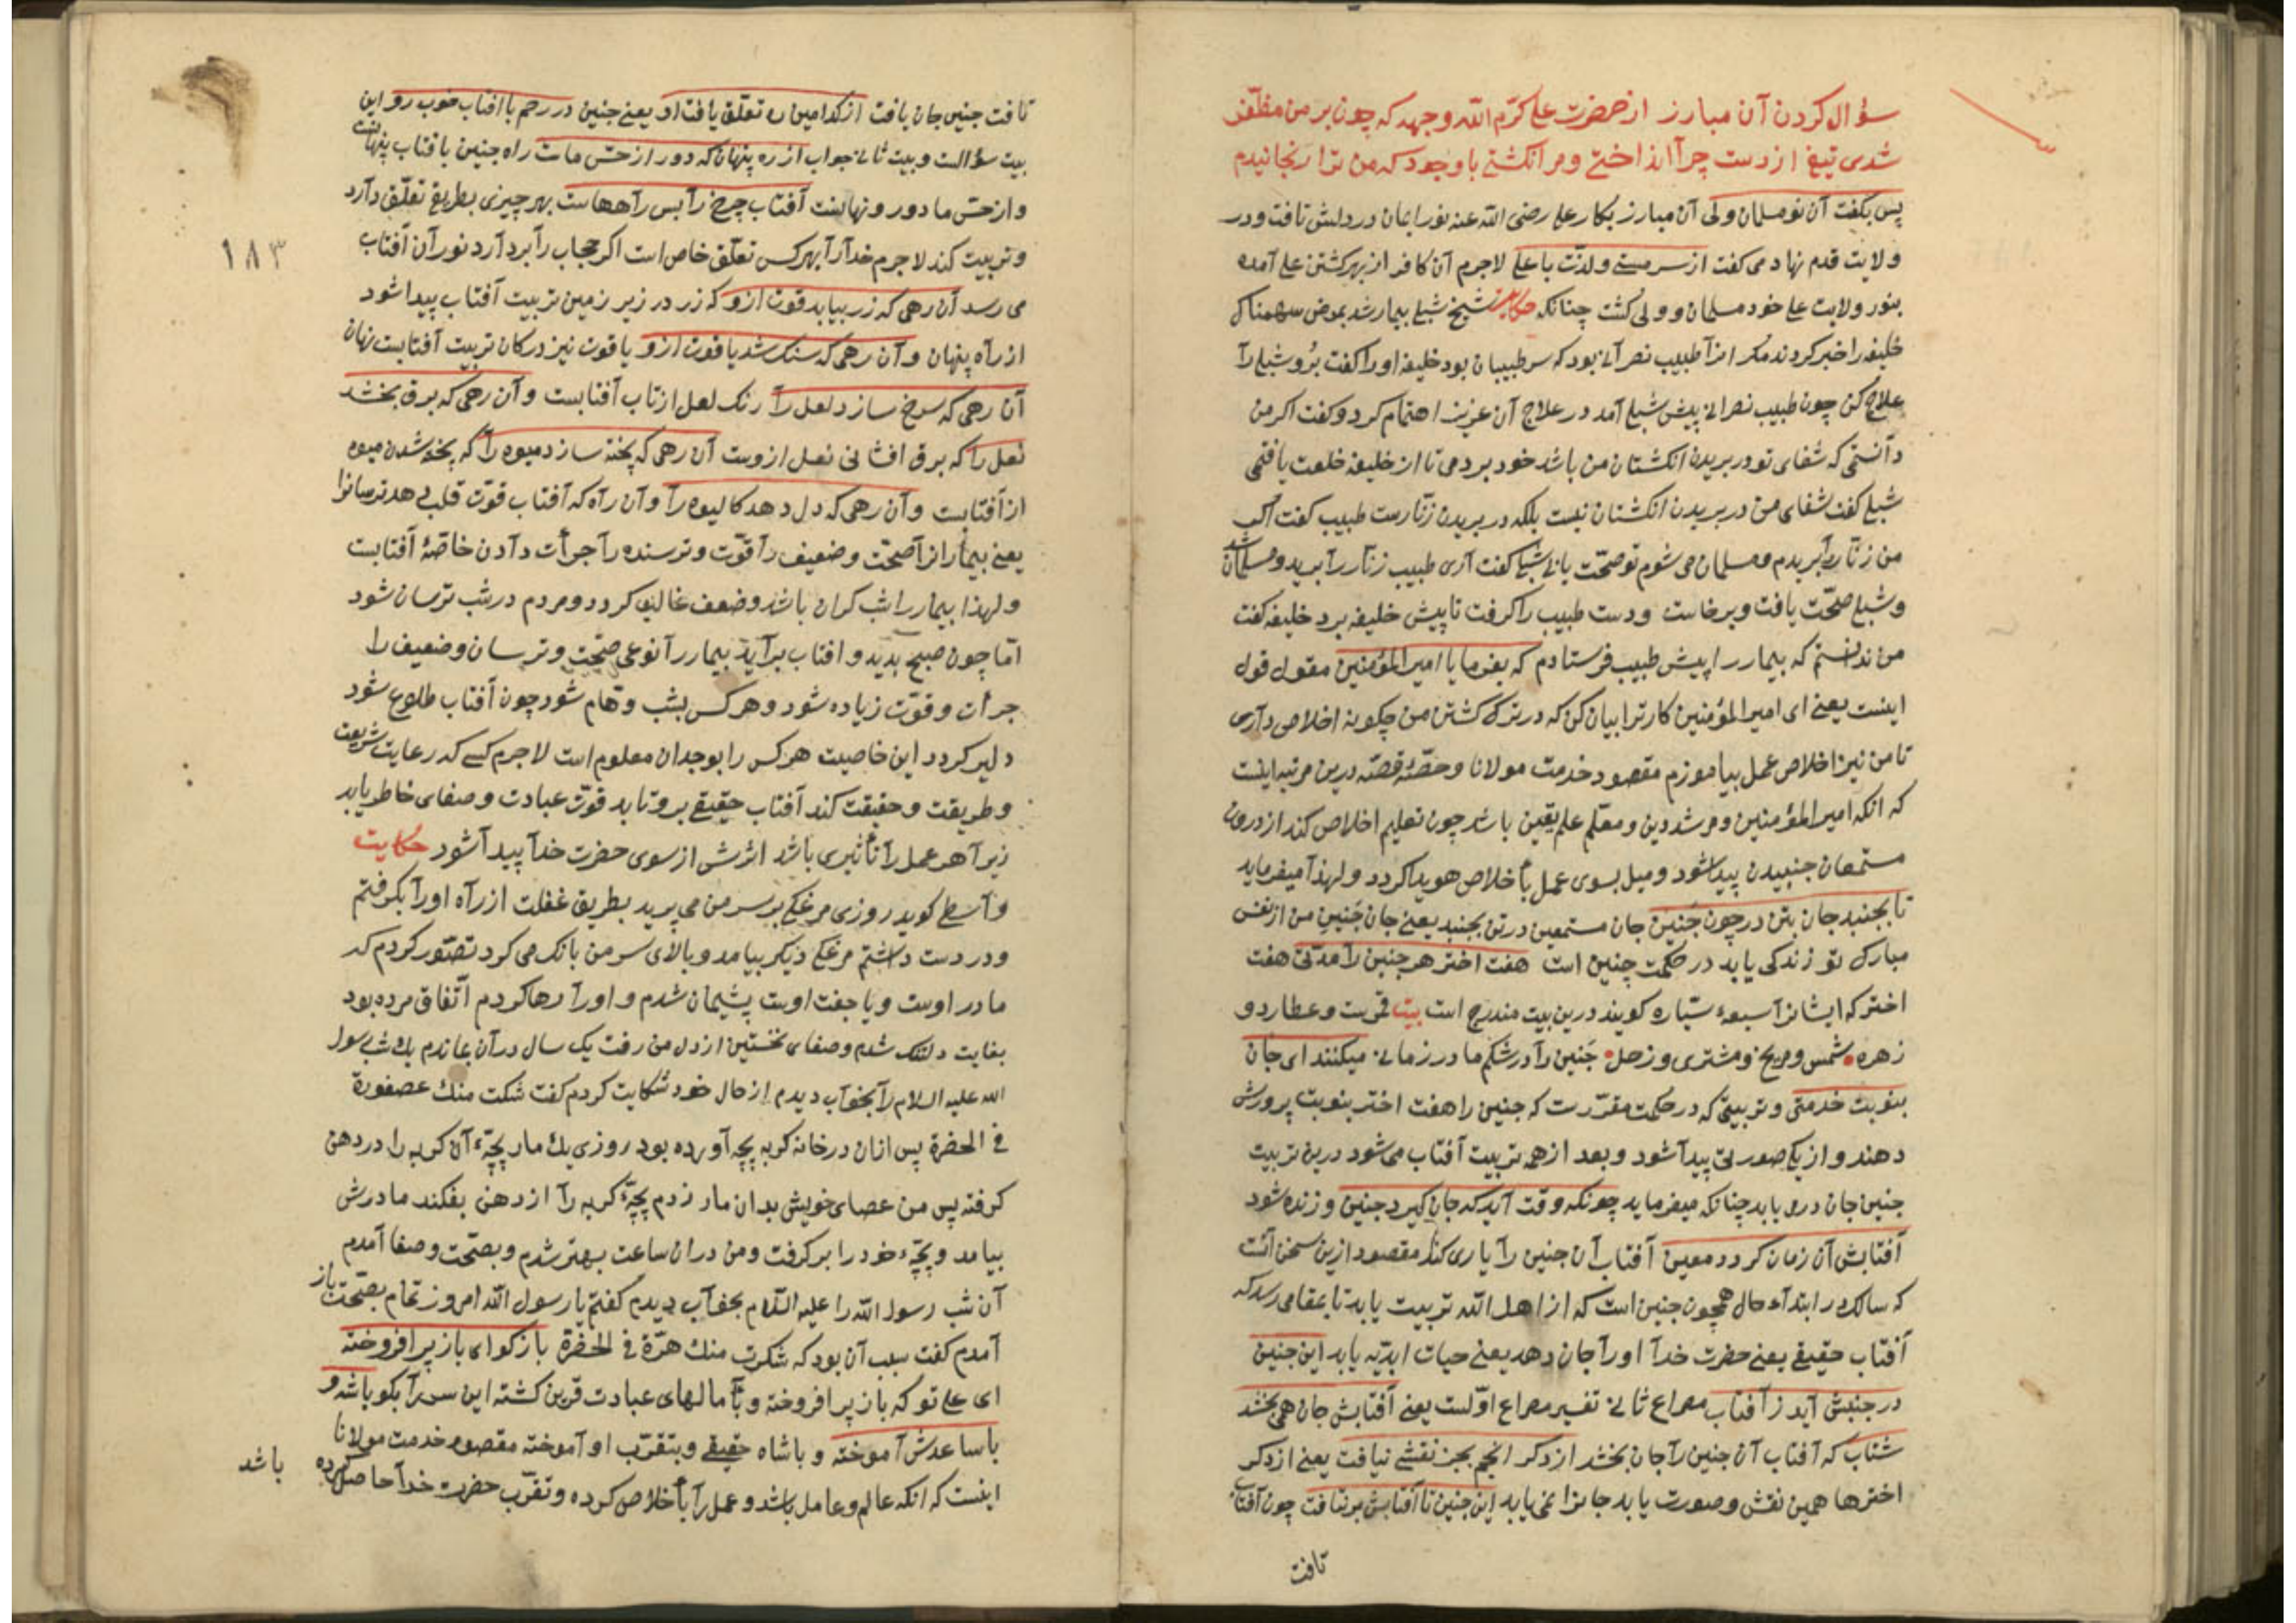 سؤال کردن آن مبارز از حضرت علی کرّم اللّه وجهه که چون بر من مظفّر
شدی تیغ از دست چرا انداختی و مرا نکشتی با وجود که من ترا رنجانیدم
پس بگفت آن نو مسلمان ولی آن مبارز بکار علی رضی اللّه عنه نور ایمان در دلش تافت و در
ولایت قدم نهاد می کفت از سر مستی و لذّت با علی لاجرم آن کافر از بهر کشتن علی آمده
بنور ولایت علی خود مسلمان و ولی کشت چنانکه حکایت شیخ شبلی بیمار شد بمرض سهمناک
خلیفه را خبر کردند مکر انرا طبیب نصرانی بود که سر طبیبان بود خلیفه او را کفت برو شبلی را
علاج کن چون طبیب نصرانی پیش شبلی آمد در علاج آن عزیز اهتمام کرد و کفت اکر من
دانستمی که شفای تو در بریدن انکشتان من باشد خود بردمی تا از خلیفه خلعت یافتمی
شبلی کفت شفای من در بریدن انکشتان نیست بلکه در بریدن زنّارست طبیب کفت اکر
من زنّار را بریدم و مسلمان می شوم تو صحّت یابی شبلی کفت آری طبیب زنّار را برید و مسلمان شد
و شبلی صحّت یافت و برخاست و دست طبیب را کرفت تا پیش خلیفه برد خلیفه کفت
من ندانستم که بیمار را پیش طبیب فرستادم که بفرما یا امیر المؤمنین مقول قول
اینست یعنی ای امیر المؤمنین کار ترا بیان کن که در ترک کشتن من چکونه اخلاص داری
تا من نیز اخلاص عمل بیاموزم مقصود خدمت مولانا و حصّهٔ قصّه درین مرتبه اینست
که انکه امیر المؤمنین و مرشد دین و معلّم علم یقین باشد چون تعلیم اخلاص کند از درون
مستمعان جنبیدن پیدا شود و میل بسوی عمل با خلاص هویدا کردد و لهذا میفرماید
تا بجنبد جان بتن در چون جنین جان مستمعین در تن بجنبد یعنی جان جنین من از نفس
مبارک تو زندکی یابد در حکمت چنین است هفت اختر هر جنین را مدّتی هفت
اختر که ایشانرا سبعهٔ سیّاره کویند درین بیت مندرج است بیت قمرست و عطارد و
زهره شمس و مریخ و مشتری و زحل جنین را در شکم مادر زمانی میکنند ای جان
بنوبت خدمتی و تربیتی که در حکمت مقرّرست که جنین را هفت اختر بنوبت پرورش
دهند و از یکی صورتی پیدا شود و بعد از همه تربیت آفتاب می شود درین تربیت
جنین جان دری یابد چنانکه میفرماید چونکه وقت آید که جان کیرد جنین و زنده شود
آفتابش آن زمان کردد معین آفتاب آن جنین را یاری کند مقصود ازین سخن آنست
که سالک در ابتداء حال همچون جنین است که از اهل اللّه تربیت یابد تا بمقامی رسد که
آفتاب حقیقی یعنی حضرت خدا او را جان دهد یعنی حیات ابدیّه یابد این جنین
در جنبش آید ز آفتاب مصراع ثانی تفسیر مصراع اوّلست یعنی آفتابش جان همی بخشد
شتاب که آفتاب آن جنین را جان بخشد از دکر انجم بجز نقشی نیافت یعنی از دکر
اخترها همین نقش و صورت یابد جانرا نمی یابد این جنین تا آفتابش بر نتافت چون آفتاب
تافت
تافت جنین جان یافت از کدامین ره تعلّق یافت او یعنی جنین در رحم با افتاب خوب رو این
بیت سؤالست و بیت ثانی جواب از ره پنهان که دور از حسّ ماست راه جنین با فتاب پنهانست
و از حسّ ما دور و نهانیست آفتاب چرخ را بس راههاست بهر چیزی بطریق تعلّق دارد
و تربیت کند لاجرم خدا را بهر کس تعلّق خاص است اکر حجاب را بردارد نور آن آفتاب
می رسد آن رهی که زر بیابد قوت ازو که زر در زیر زمین تربیت آفتاب پیدا شود
از راه پنهان و آن رهی که سنک شد یاقوت ازو یاقوت نیز در کان تربیت آفتابست نهان
آن رهی که سرخ سازد لعل را رنک لعل از تاب آفتابست و آن رهی که برق بخشد
نعل را که برق افشانی نعل ازوست آن رهی که پخته سازد میوه را که پخته شدن میوه
از آفتابست و آن رهی که دل دهد کالیوه را و آن راه که آفتاب قوّت قلب دهد ترسانرا
یعنی بیمار انرا صحّت و ضعیف را قوّت و ترسنده را جرأت دادن خاصّهٔ آفتابست
و لهذا بیمار را شب کران باشد و ضعف غالب کردد و مردم در شب ترسان شود
امّا چون صبح بدید و افتاب برآید بیمار را نوعی صحّت و ترسان و ضعیف را
جرأت و قوّت زیاده شود و هر کس بشب وهام شود چون آفتاب طلوع شود
دلیر کردد این خاصیت هر کس را بوجدان معلوم است لاجرم کسی که رعایت شریعت
و طریقت و حقیقت کند آفتاب حقیقی برو تابد قوّت عبادت و صفای خاطر یابد
زیرا هر عمل را تأثیری باشد اثرش از سوی حضرت خدا پیدا شود حکایت
واسطی کوید روزی مرغکی بر سر من می پرید بطریق غفلت از راه او را بکرفتم
و در دست داشتم مرغکی دیکر بیامد و بالای سر من بانک می کرد تصوّر کردم که
مادر اوست و یا جفت اوست پشیمان شدم و او را رها کردم اتّفاق مرده بود
بغایت دلتنک شدم و صفای نخستین از دل من رفت یک سال در آن بماندم یک شب رسول
اللّه علیه السلام را بخواب دیدم از حال خود شکایت کردم کفت شکت منك عصفورة
فی الحضرة پس ازان در خانه کربه بچه آورده بود روزی یک مار بچّهٔ آن کربه را در دهن
کرفته پس من عصای خویش بدان مار زدم بچّهٔ کربه را از دهن بفکند مادرش
بیامد و بچّهٔ خود را بر کرفت و من در آن ساعت بهتر شدم و بصحّت و صفا آمدم
آن شب رسول اللّه را علیه السّلام بخواب دیدم کفتم یا رسول اللّه امروز تمام بصحّت باز
آمدم کفت سبب آن بود که شکرت منك هرّة فی الحضرة باز کو ای باز پر افروخته
ای علی تو که باز پر افروخته و با مالهای عبادت قرین کشته این سر را بکو باشه و
با ساعدش آموخته و با شاه حقیقی و بتقرّب او آموخته مقصود خدمت مولانا
اینست که انکه عالم و عامل باشد و عمل را با خلاص کرده و تقرّب حضرت خدا حاصل کرده
باشد
۱۸۳